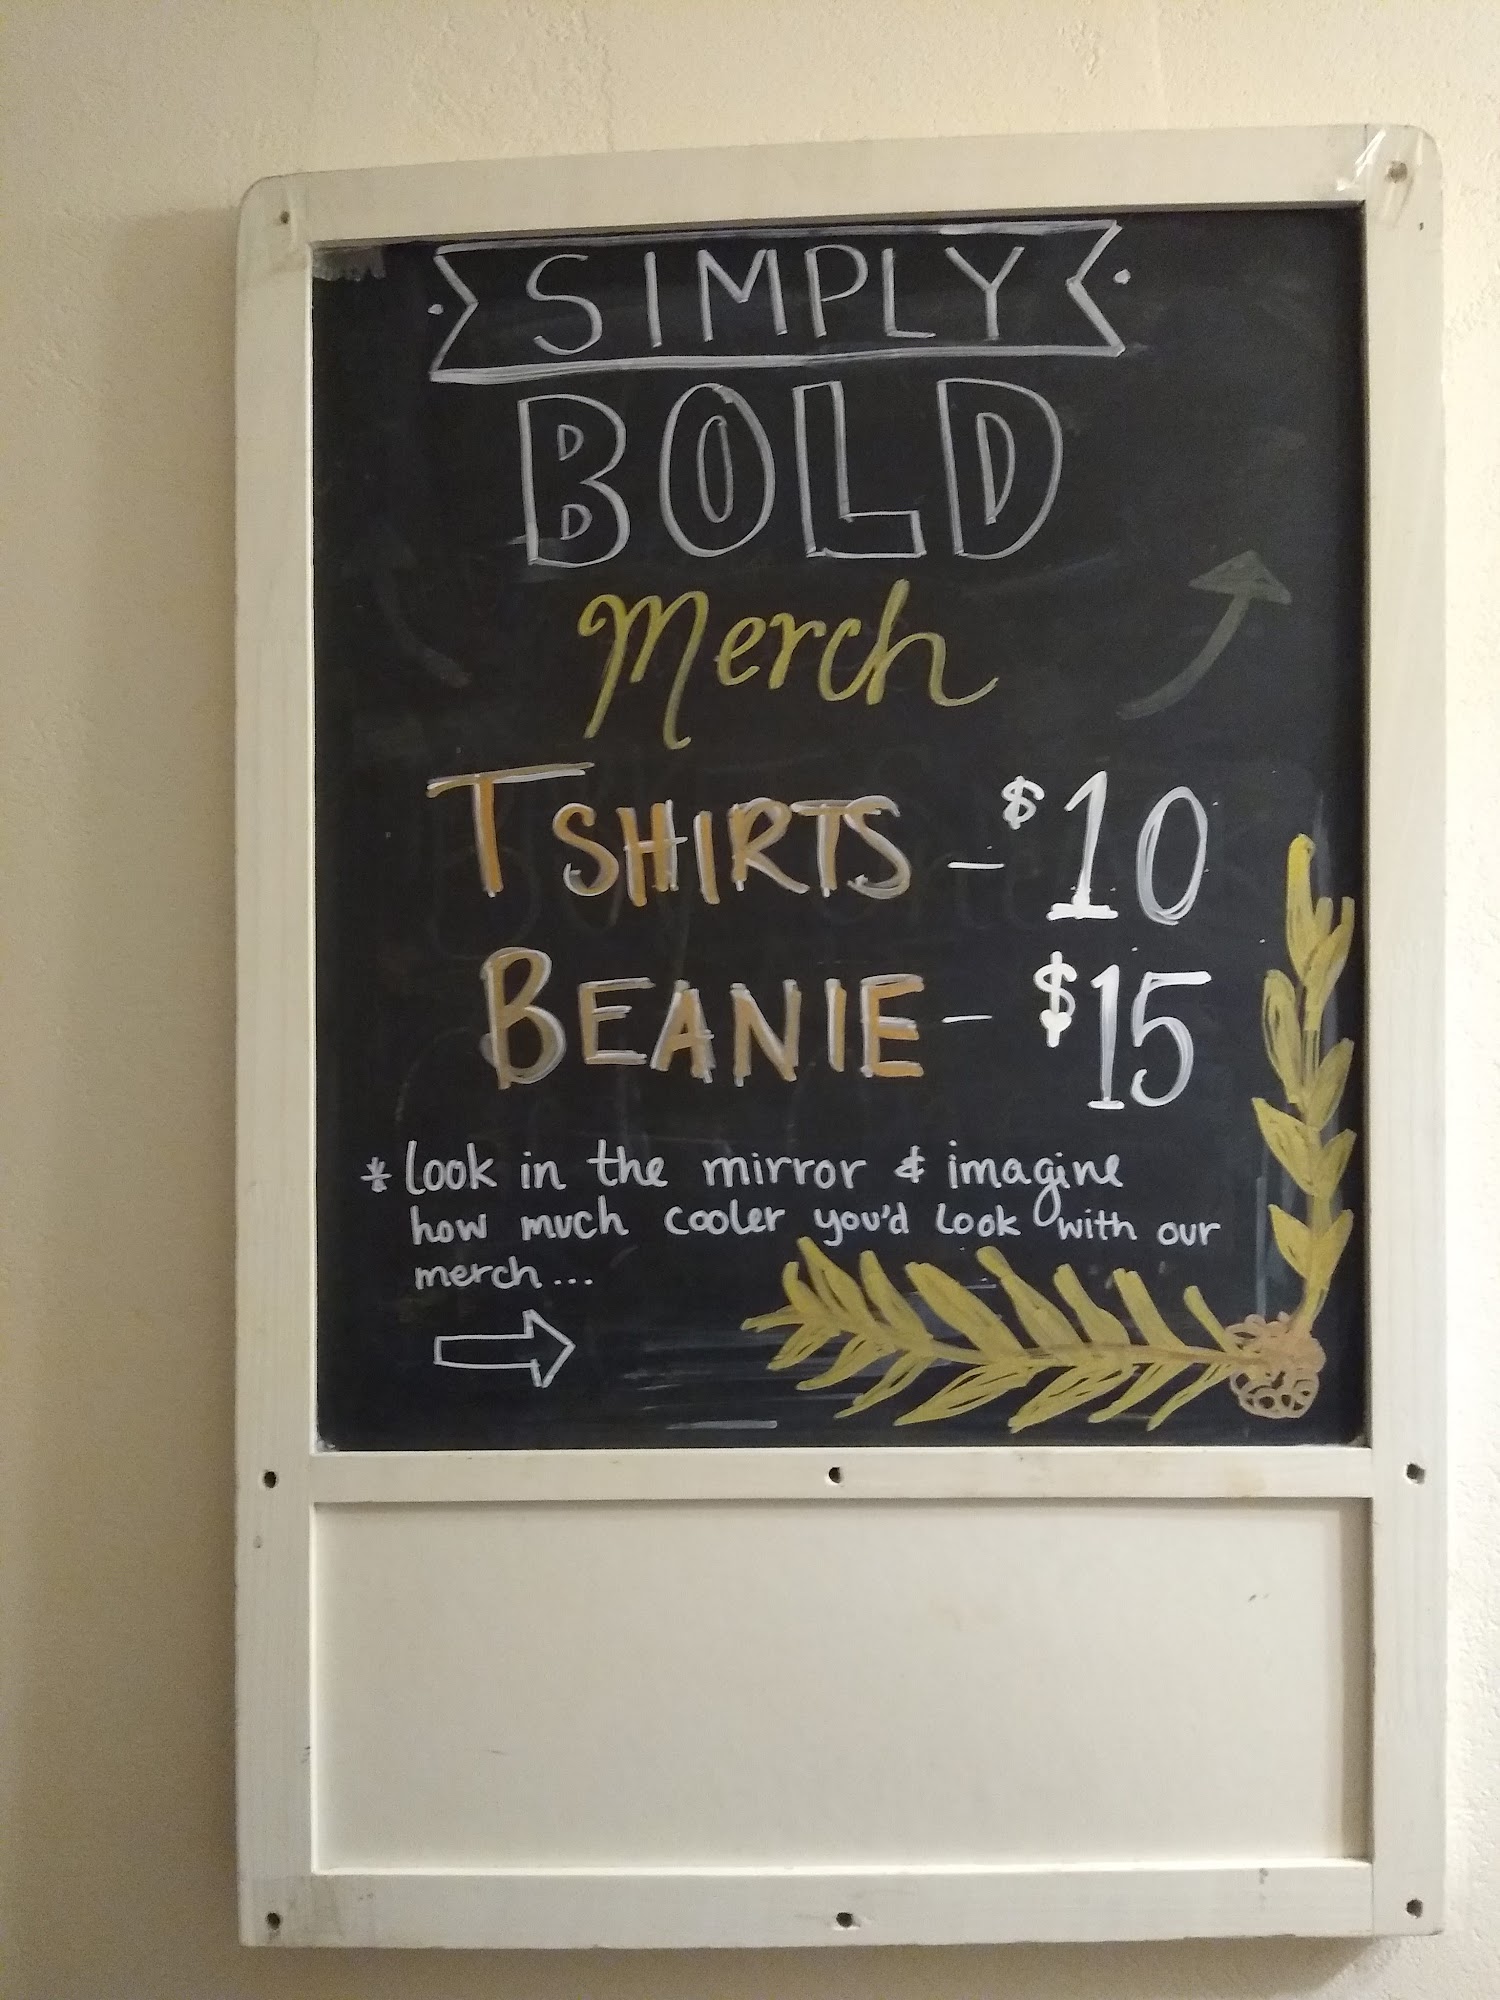 SIMPLY
BOLD
Merch
TSHIRTS - $10
BEANIE - $15
* look in the mirror & imagine
how much cooler you'd look with our
merch...